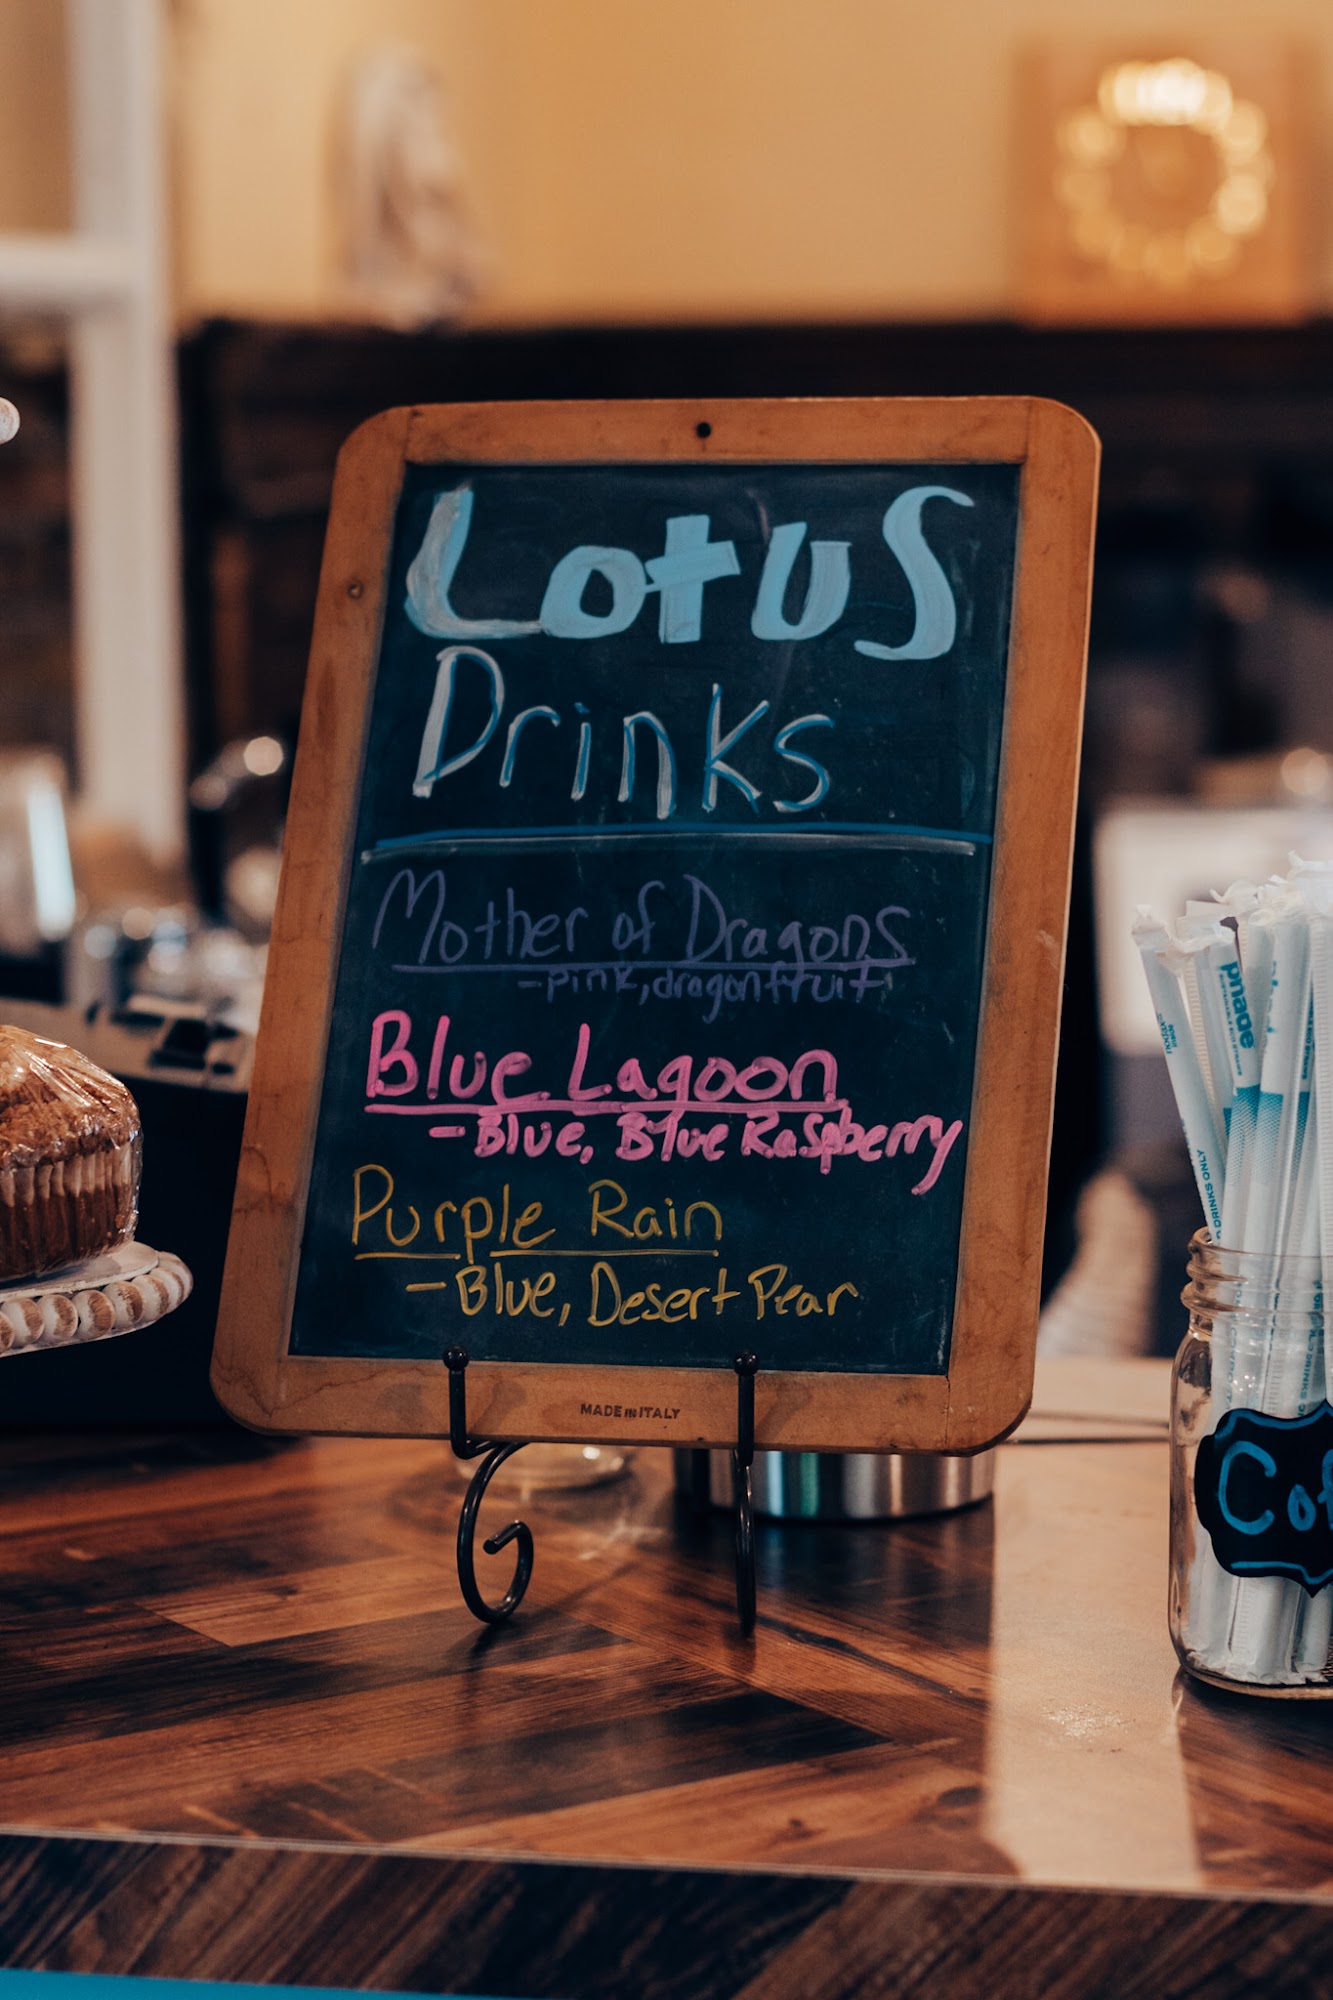 Lotus
Drinks
Mother of Dragons
-pink, dragonfruit
Blue Lagoon
-Blue, Blue Raspberry
Purple Rain
-Blue, Desert Pear
MADE IN ITALY
phade
DRINKS ONLY